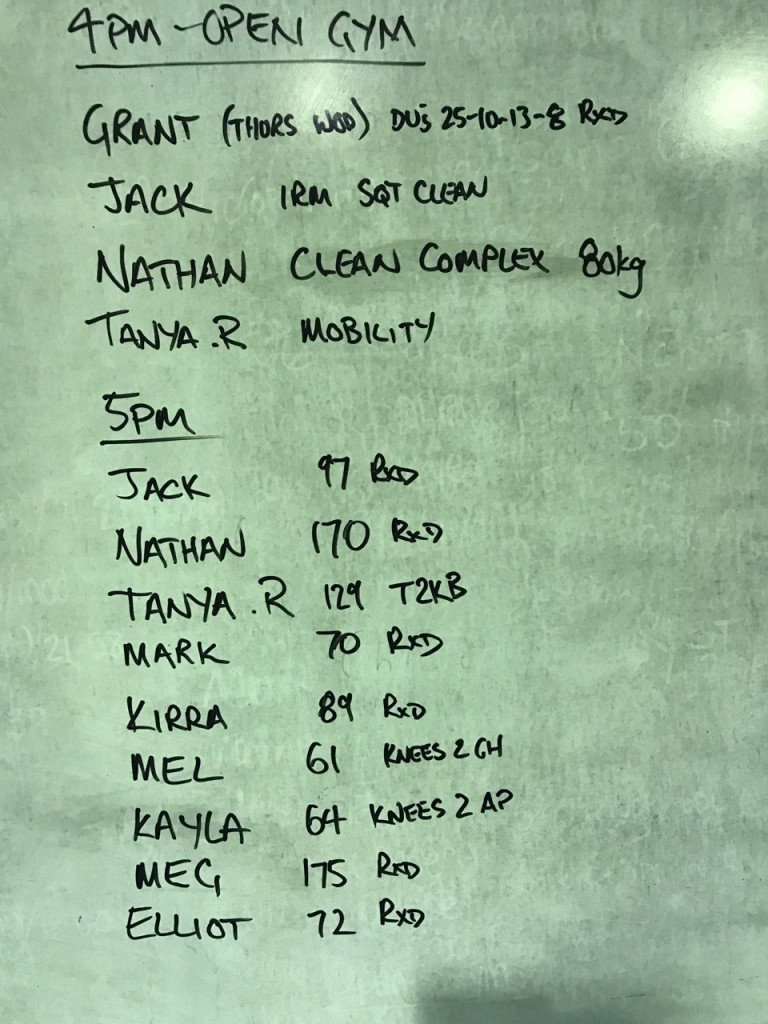 4PM - OPEN GYM
GRANT (THORS WOD) DU's 25-10-13-8 RXD
JACK 1RM SQT CLEAN
NATHAN CLEAN COMPLEX 80kg
TANYA.R MOBILITY
5PM
JACK 97 RXD
NATHAN 170 RXD
TANYA.R 129 T2KB
MARK 70 RXD
KIRRA 89 RXD
MEL 61 KNEES 2 CH
KAYLA 64 KNEES 2 AP
MEG 175 RXD
ELLIOT 72 RXD